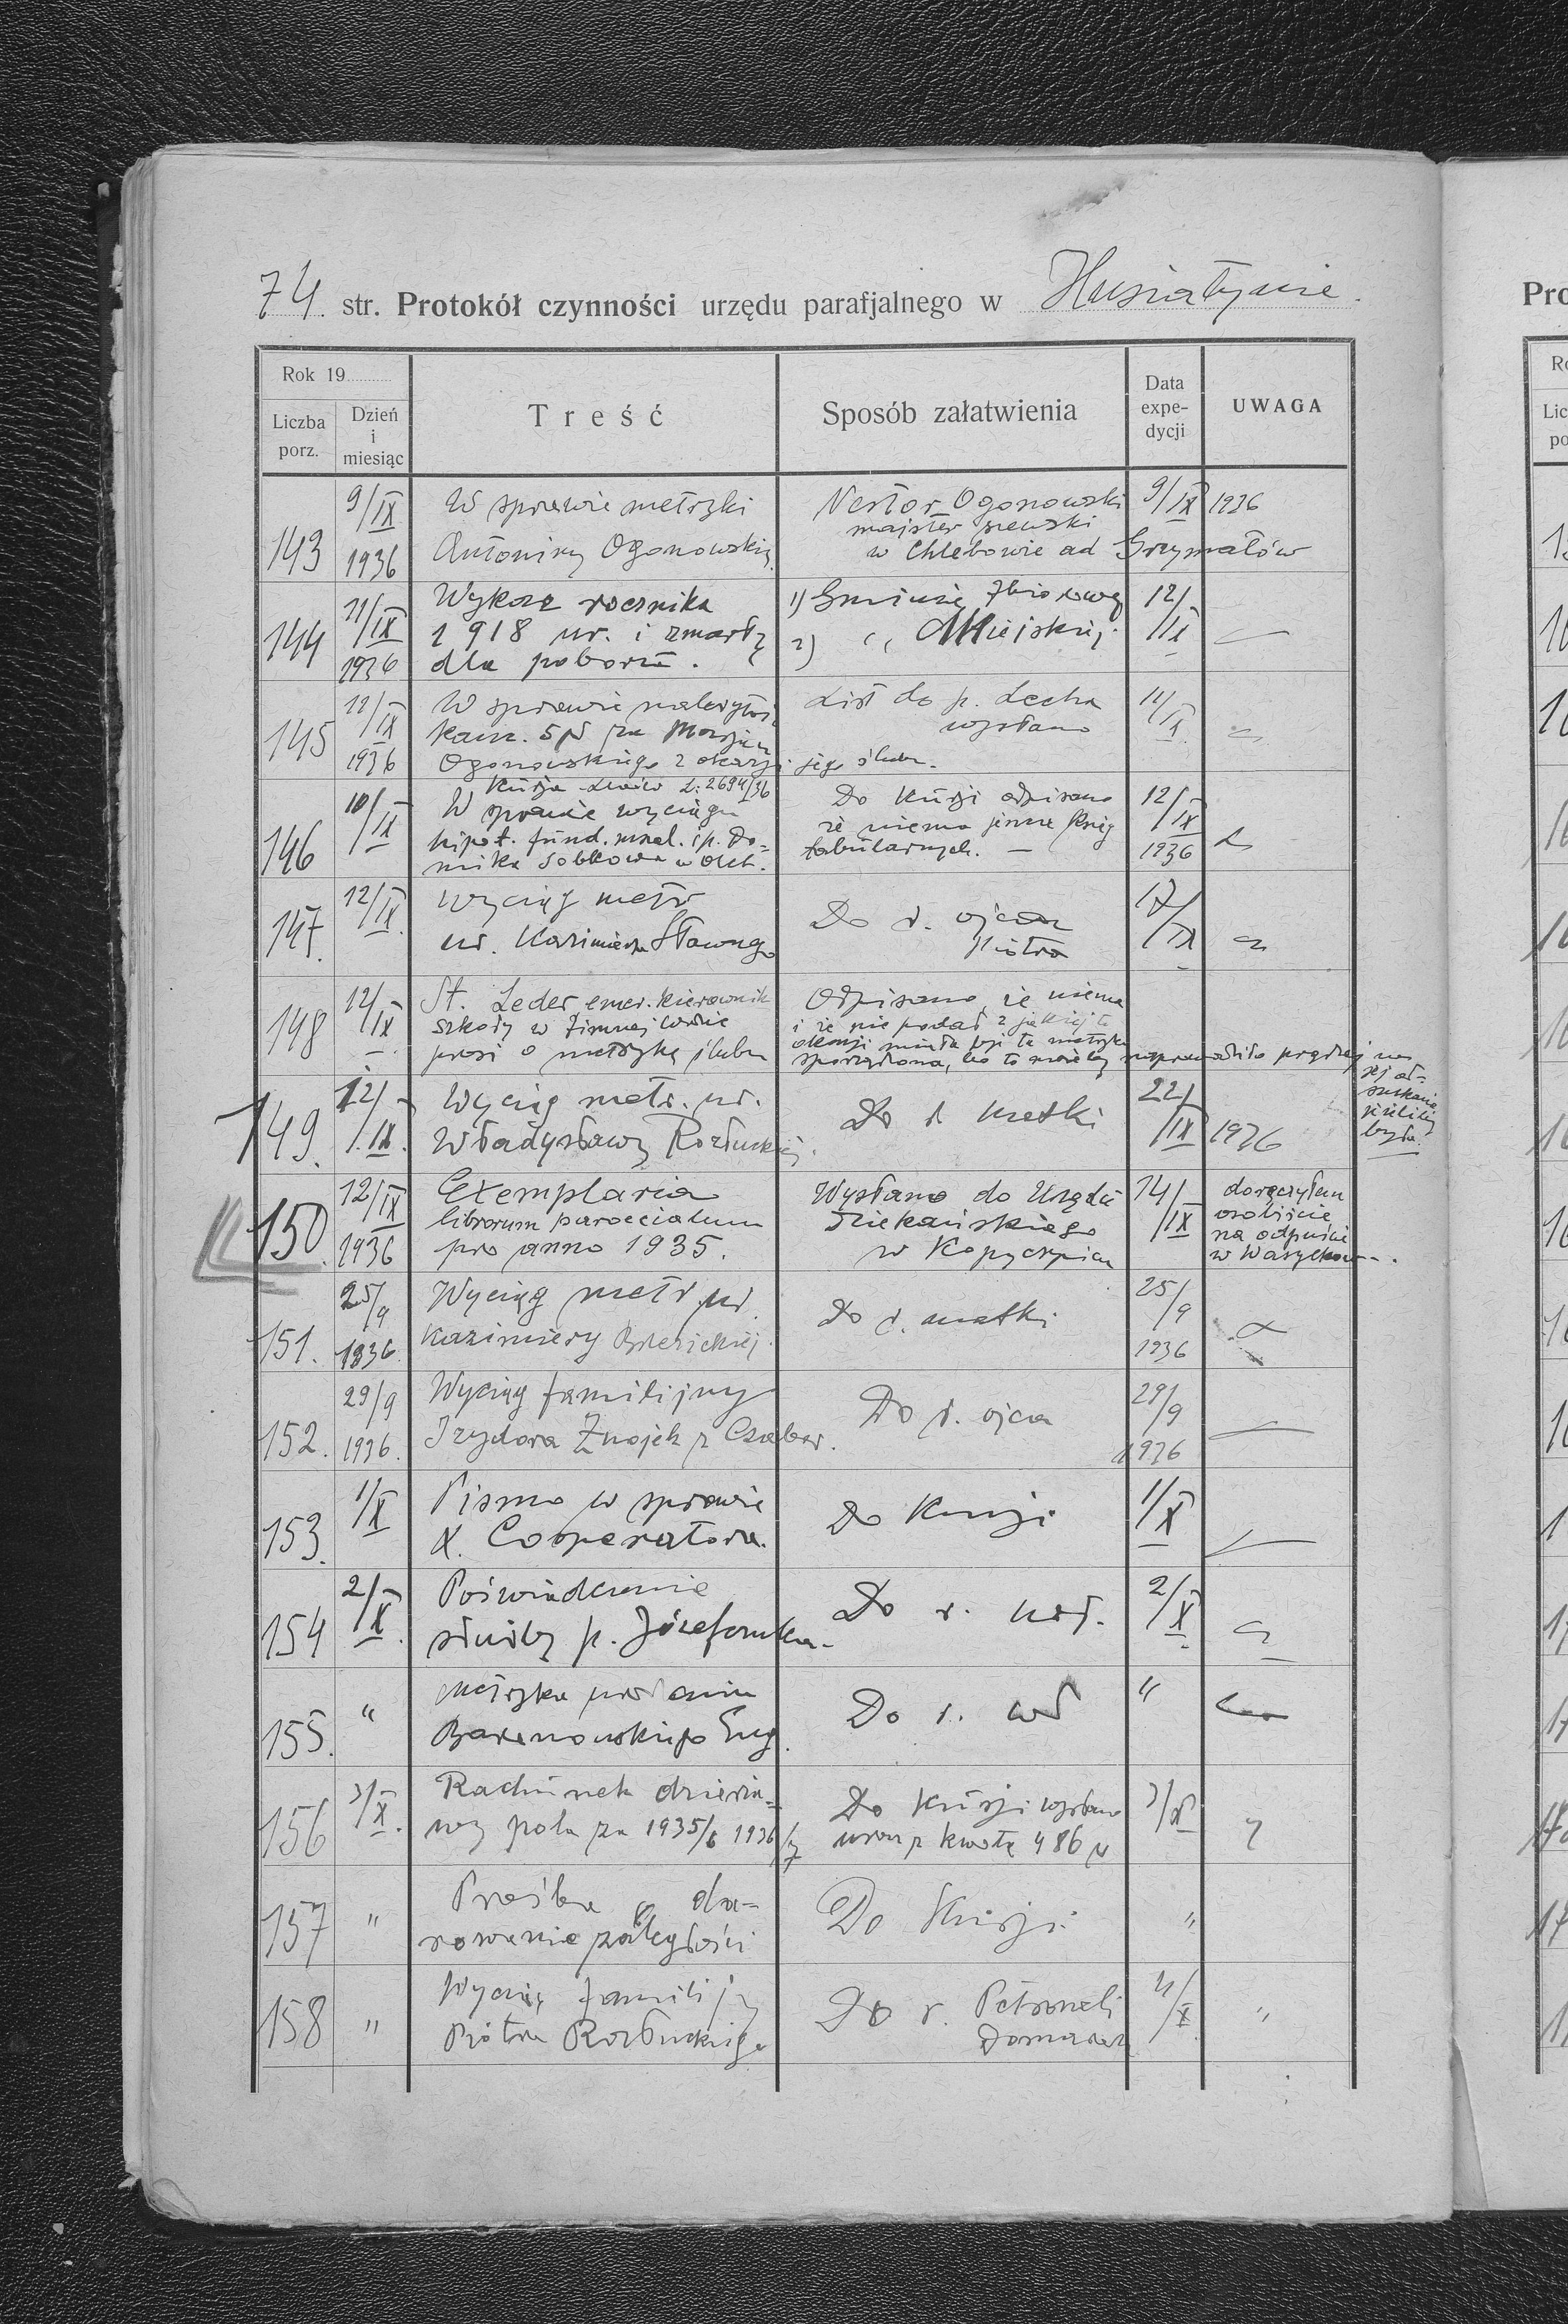 74. str. Protokół czynności urzędu parafjalnego w Husiatynie.
Rok 19
Liczba porz.
Dzień i miesiąc
Treść
Sposób załatwienia
Data expe-dycji
UWAGA
143
9/IX 1936
W sprawie metryki
Antoniny Ogonowskiej
Nestor Ogonowski
majster
w Chlebowie ad Grzymałów
9/IX 1936
144
11/IX 1936
Wykaz rocznika
1918 ur. i zmarłych
dla poboru.
1) Gminie Zbiorowej
2) " Miejskiej.
12/IX
145
12/IX 1936
W sprawie
za
Ogonowskiego z okazji jego ślubu.
List do p. Lecha
wysłano
11/IX
146
10/IX
Kurja Lwów L: 2694/36
W sprawie wyciągu
hipot. fund.
Do Kurji odpisano
że niema jeszcze ksiąg
tabularnych. —
12/IX 1936
147.
12/IX.
Wyciąg metr
ur. Kazimierza Sławnego
Do r. ojca
Piotra
17/IX
148
12/IX
St. Leder emer. kierownik
szkoły w Zimnej Wodzie
prosi o metrykę ślubu
Odpisano, że niema
i że nie podał z jakiej to
okazji miała być ta metryka
sporządzona, bo to możeby naprowadziło prędzej na
jej od-
szukanie
jeśliby
była.
149.
12/IX.
Wyciąg metr. ur.
Władysławy Rozłuckiej.
Do r. matki
22/IX 1936
150.
12/IX 1936
Exemplaria
librorum paroecialium
pro anno 1935.
Wysłano do Urzędu
Dziekańskiego
w Kopyczyńcach
14/IX
doręczyłem
osobiście
na odpuście
w Wasylkow...
151.
25/9 1936.
Wyciąg metr. ur.
Kazimiery Brzezickiej.
Do r. matki
25/9 1936
152.
29/9 1936.
Wyciąg familijny
Izydora Żnojek z Czabar.
Do r. ojca
29/9 1936
153.
1/X
Pismo w sprawie
X. Cooperatora.
Do Kurji
1/X
154
2/X.
Poświadczenie
służby p.
Do r. wł.
2/X
155.
"
Metryka urodzenia
Baranowskiego Eug.
Do r. wł
"
156
3/X.
Rachunek dzierża-
wy pola za 1935/6 1936/7
Do Kurji wysłano
wraz z kwotą 486 zł
3/X
157
"
Prośba o da-
rowanie zaległości
Do Kurji
"
158
"
Wyciąg familijny
Piotra Rozłuckiego
Do r. Petroneli
4/X
"
Pro